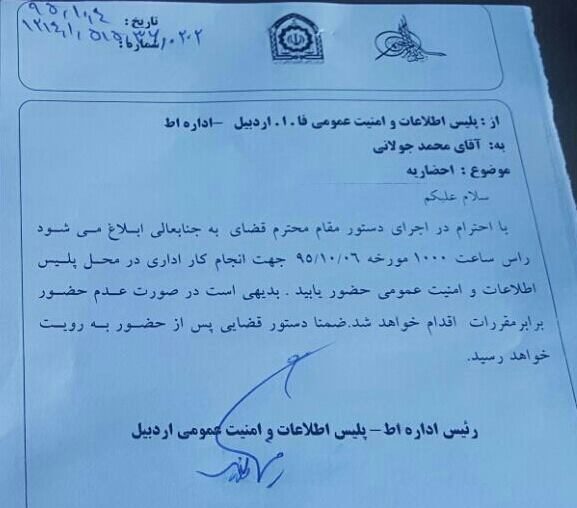 تاریخ: ۹۵،۱۰،۴
شماره: ۱۲۱۴،۱،۵۱۵،۳۶/۰۲۰۲
از: پلیس اطلاعات و امنیت عمومی فا.ا.اردبیل –اداره اط
به: آقای محمد جولانی
موضوع : احضاریه
سلام علیکم
با احترام در اجرای دستور مقام محترم قضای به جنابعالی ابلاغ می شود
راس ساعت ۱۰۰۰ مورخه ۹۵/۱۰/۰۶ جهت انجام کار اداری در محل پلیس
اطلاعات و امنیت عمومی حضور یابید . بدیهی است در صورت عدم حضور
برابرمقررات اقدام خواهد شد.ضمنا دستور قضایی پس از حضور به رویت
خواهد رسید.
رئیس اداره اط– پلیس اطلاعات و امنیت عمومی اردبیل